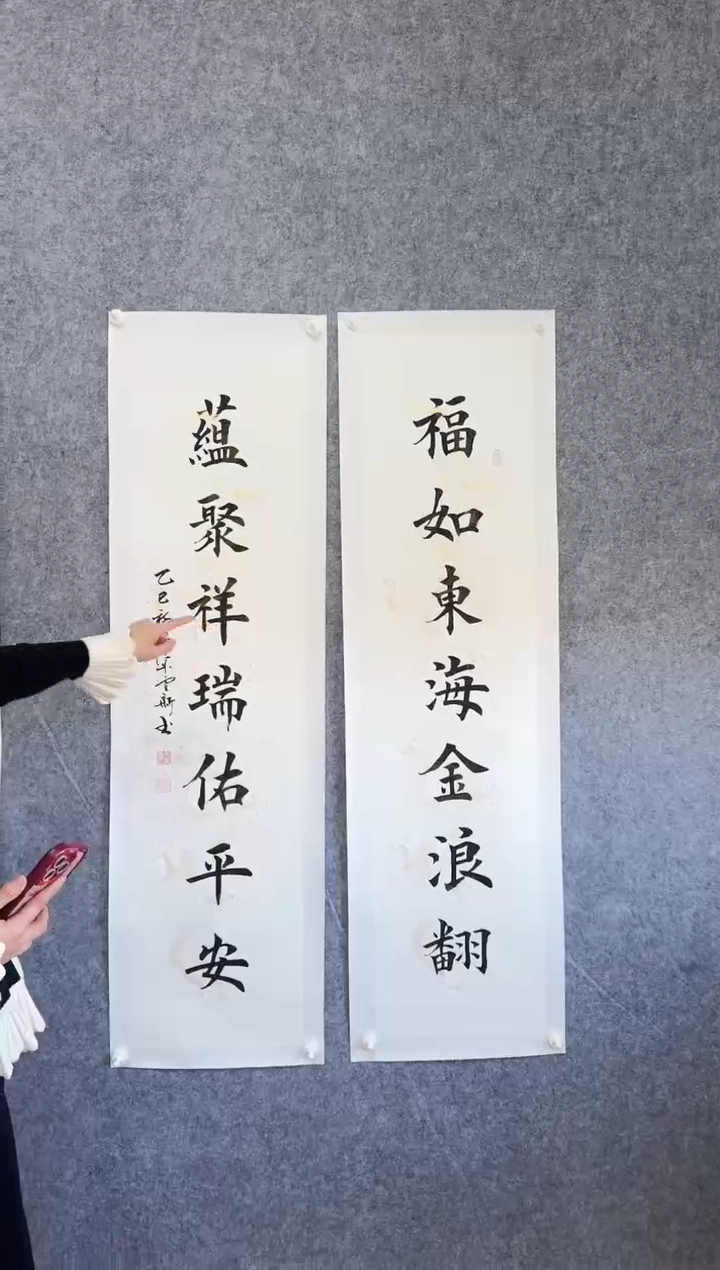 福如東海金浪翻
蘊聚祥瑞佑平安
乙巳
雲斯书